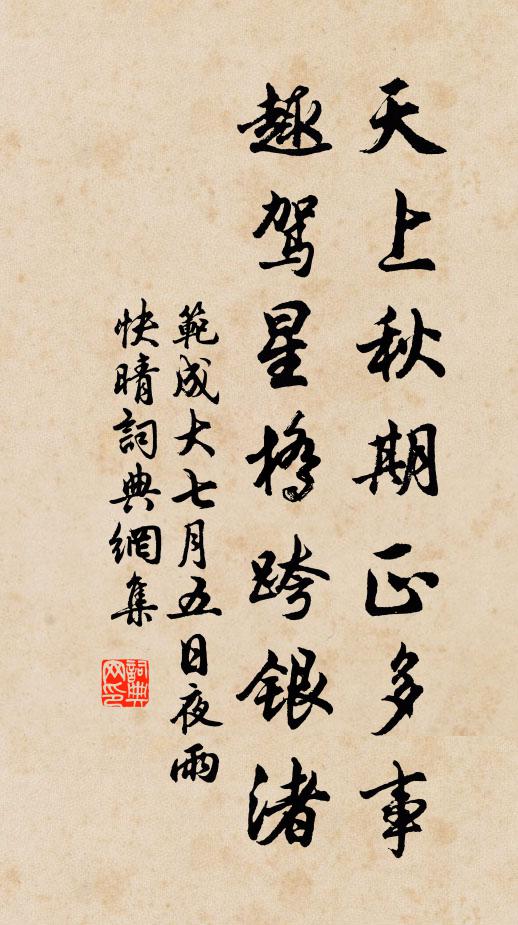 天上秋期正多事
趣驾星橋跨银渚
範成大七月五日夜雨
快晴詞典網集
詞典网印